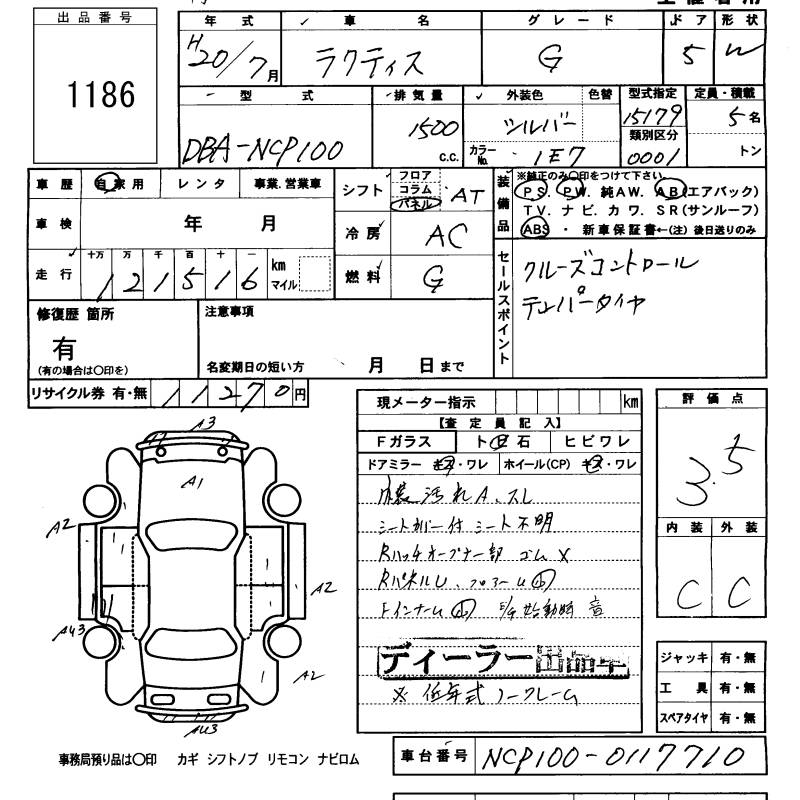 出品番号
1186
年式 車名 グレード ドア 形状
H20/7月 ラクティス G 5 W
型式 排気量 外装色 色替 型式指定 定員・積載
DBA-NCP100 1500 c.c. シルバー 15179 5名
カラーNo. 1E7 類別区分 0001 トン
車歴 自家用 レンタ 事業.営業車
車検 年 月
走行 十万 万 千 百 十 一
121516 km マイル
シフト フロア コラム パネル AT
冷房 AC
燃料 G
装備品 ※純正のみ〇印をつけて下さい。
P S. P W. 純A W. A B(エアバック)
T V. ナビ. カワ. S R(サンルーフ)
ABS ・ 新車保証書←(注) 後日送りのみ
セールスポイント
クルーズコントロール
テンパータイヤ
修復歴 箇所
有
(有の場合は〇印を)
注意事項
名変期日の短い方 月 日まで
リサイクル券 有・無 11270円
現メーター指示 km
【査定員記入】
Fガラス ト 石 ヒビワレ
ドアミラー キズ・ワレ ホイール(CP) キズ・ワレ
内装 汚れ A、スレ
シートカバー付 シート不明
Rハッチオープナー部 ゴム X
始動時 音
ディーラー出品車
※ 低年式 ノークレーム
評価点
3.5
内装 外装
C C
ジャッキ 有・無
工具 有・無
スペアタイヤ 有・無
A3
A1
A2
A2
AU3
A2
AU3
事務局預り品は〇印 カギ シフトノブ リモコン ナビロム
車台番号 NCP100-0117710